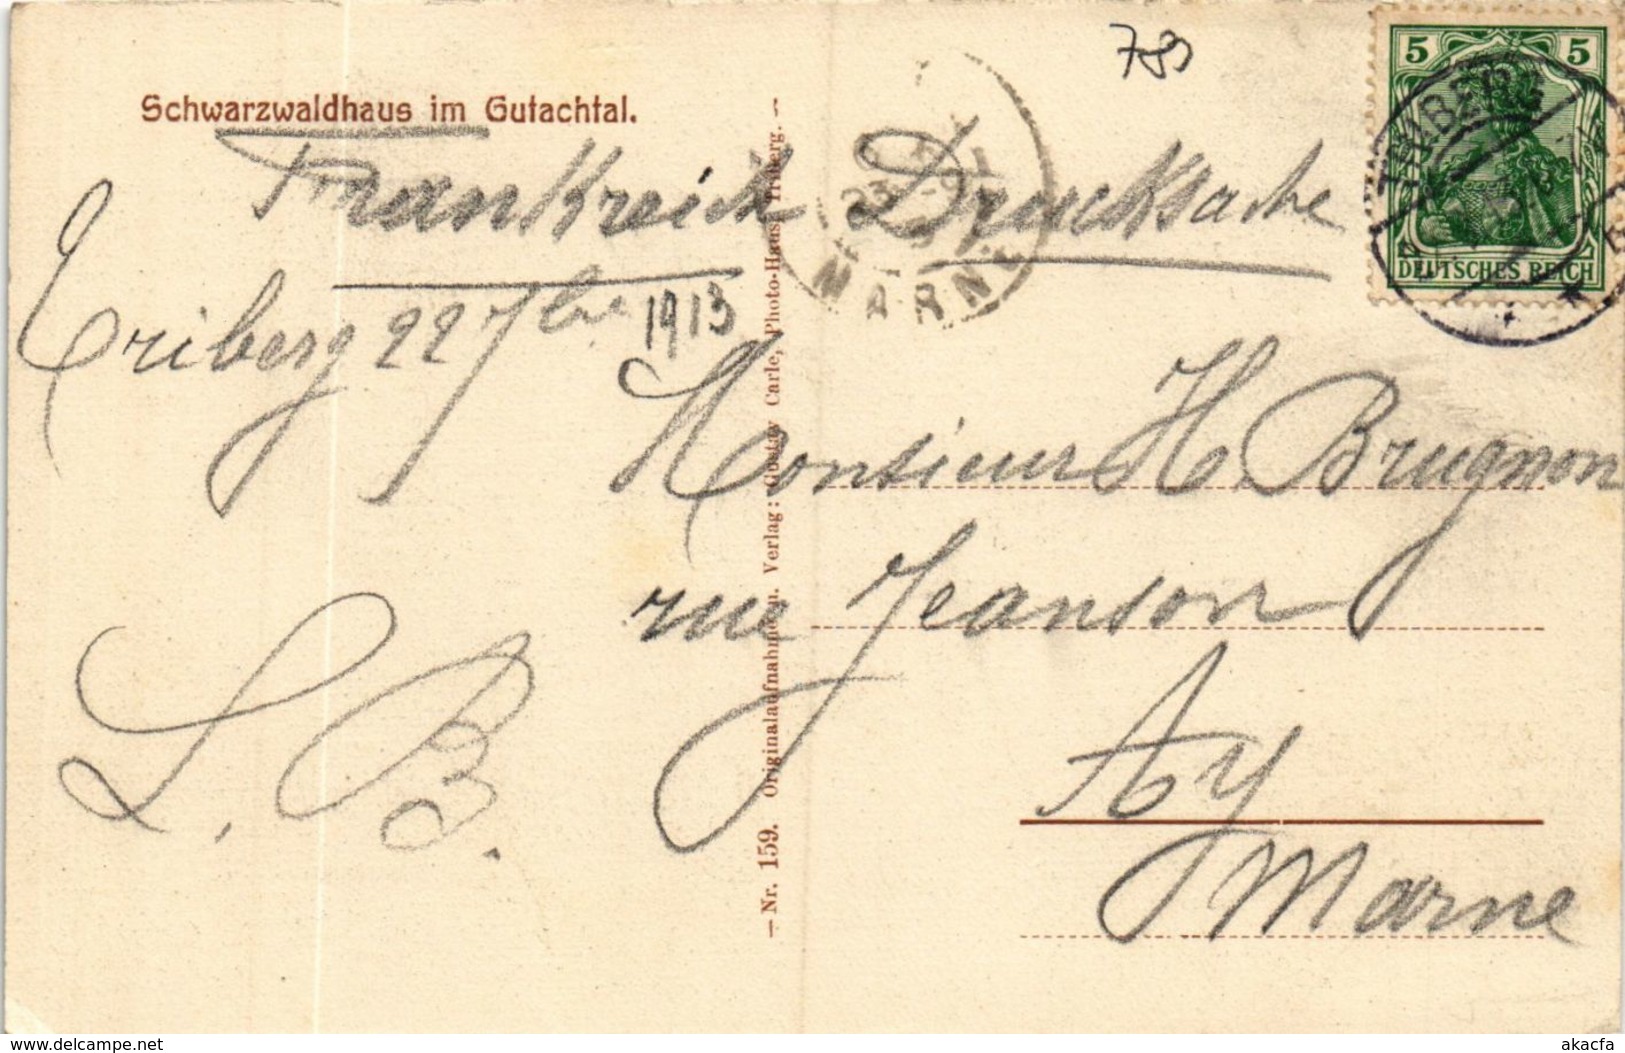 789
5 5
DEUTSCHES REICH
TRIBERG
Schwarzwaldhaus im Gutachtal.
Frankreich Drucksache
MARNE
Triberg 22 7bre 1913
Monsieur H. Brugnon
rue Jeanson
Ay
Marne
L. B.
— Nr. 159. Originalaufnahme u. Verlag: Gustav Carle, Photo-Haus, Triberg. —
delcampe.net
akacfa